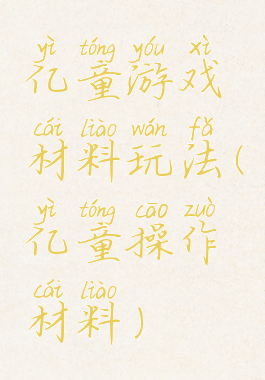 yì tóng yóu xì
亿童游戏
cái liào wán fǎ
材料玩法(
yì tóng cāo zuò
亿童操作
cái liào
材料)